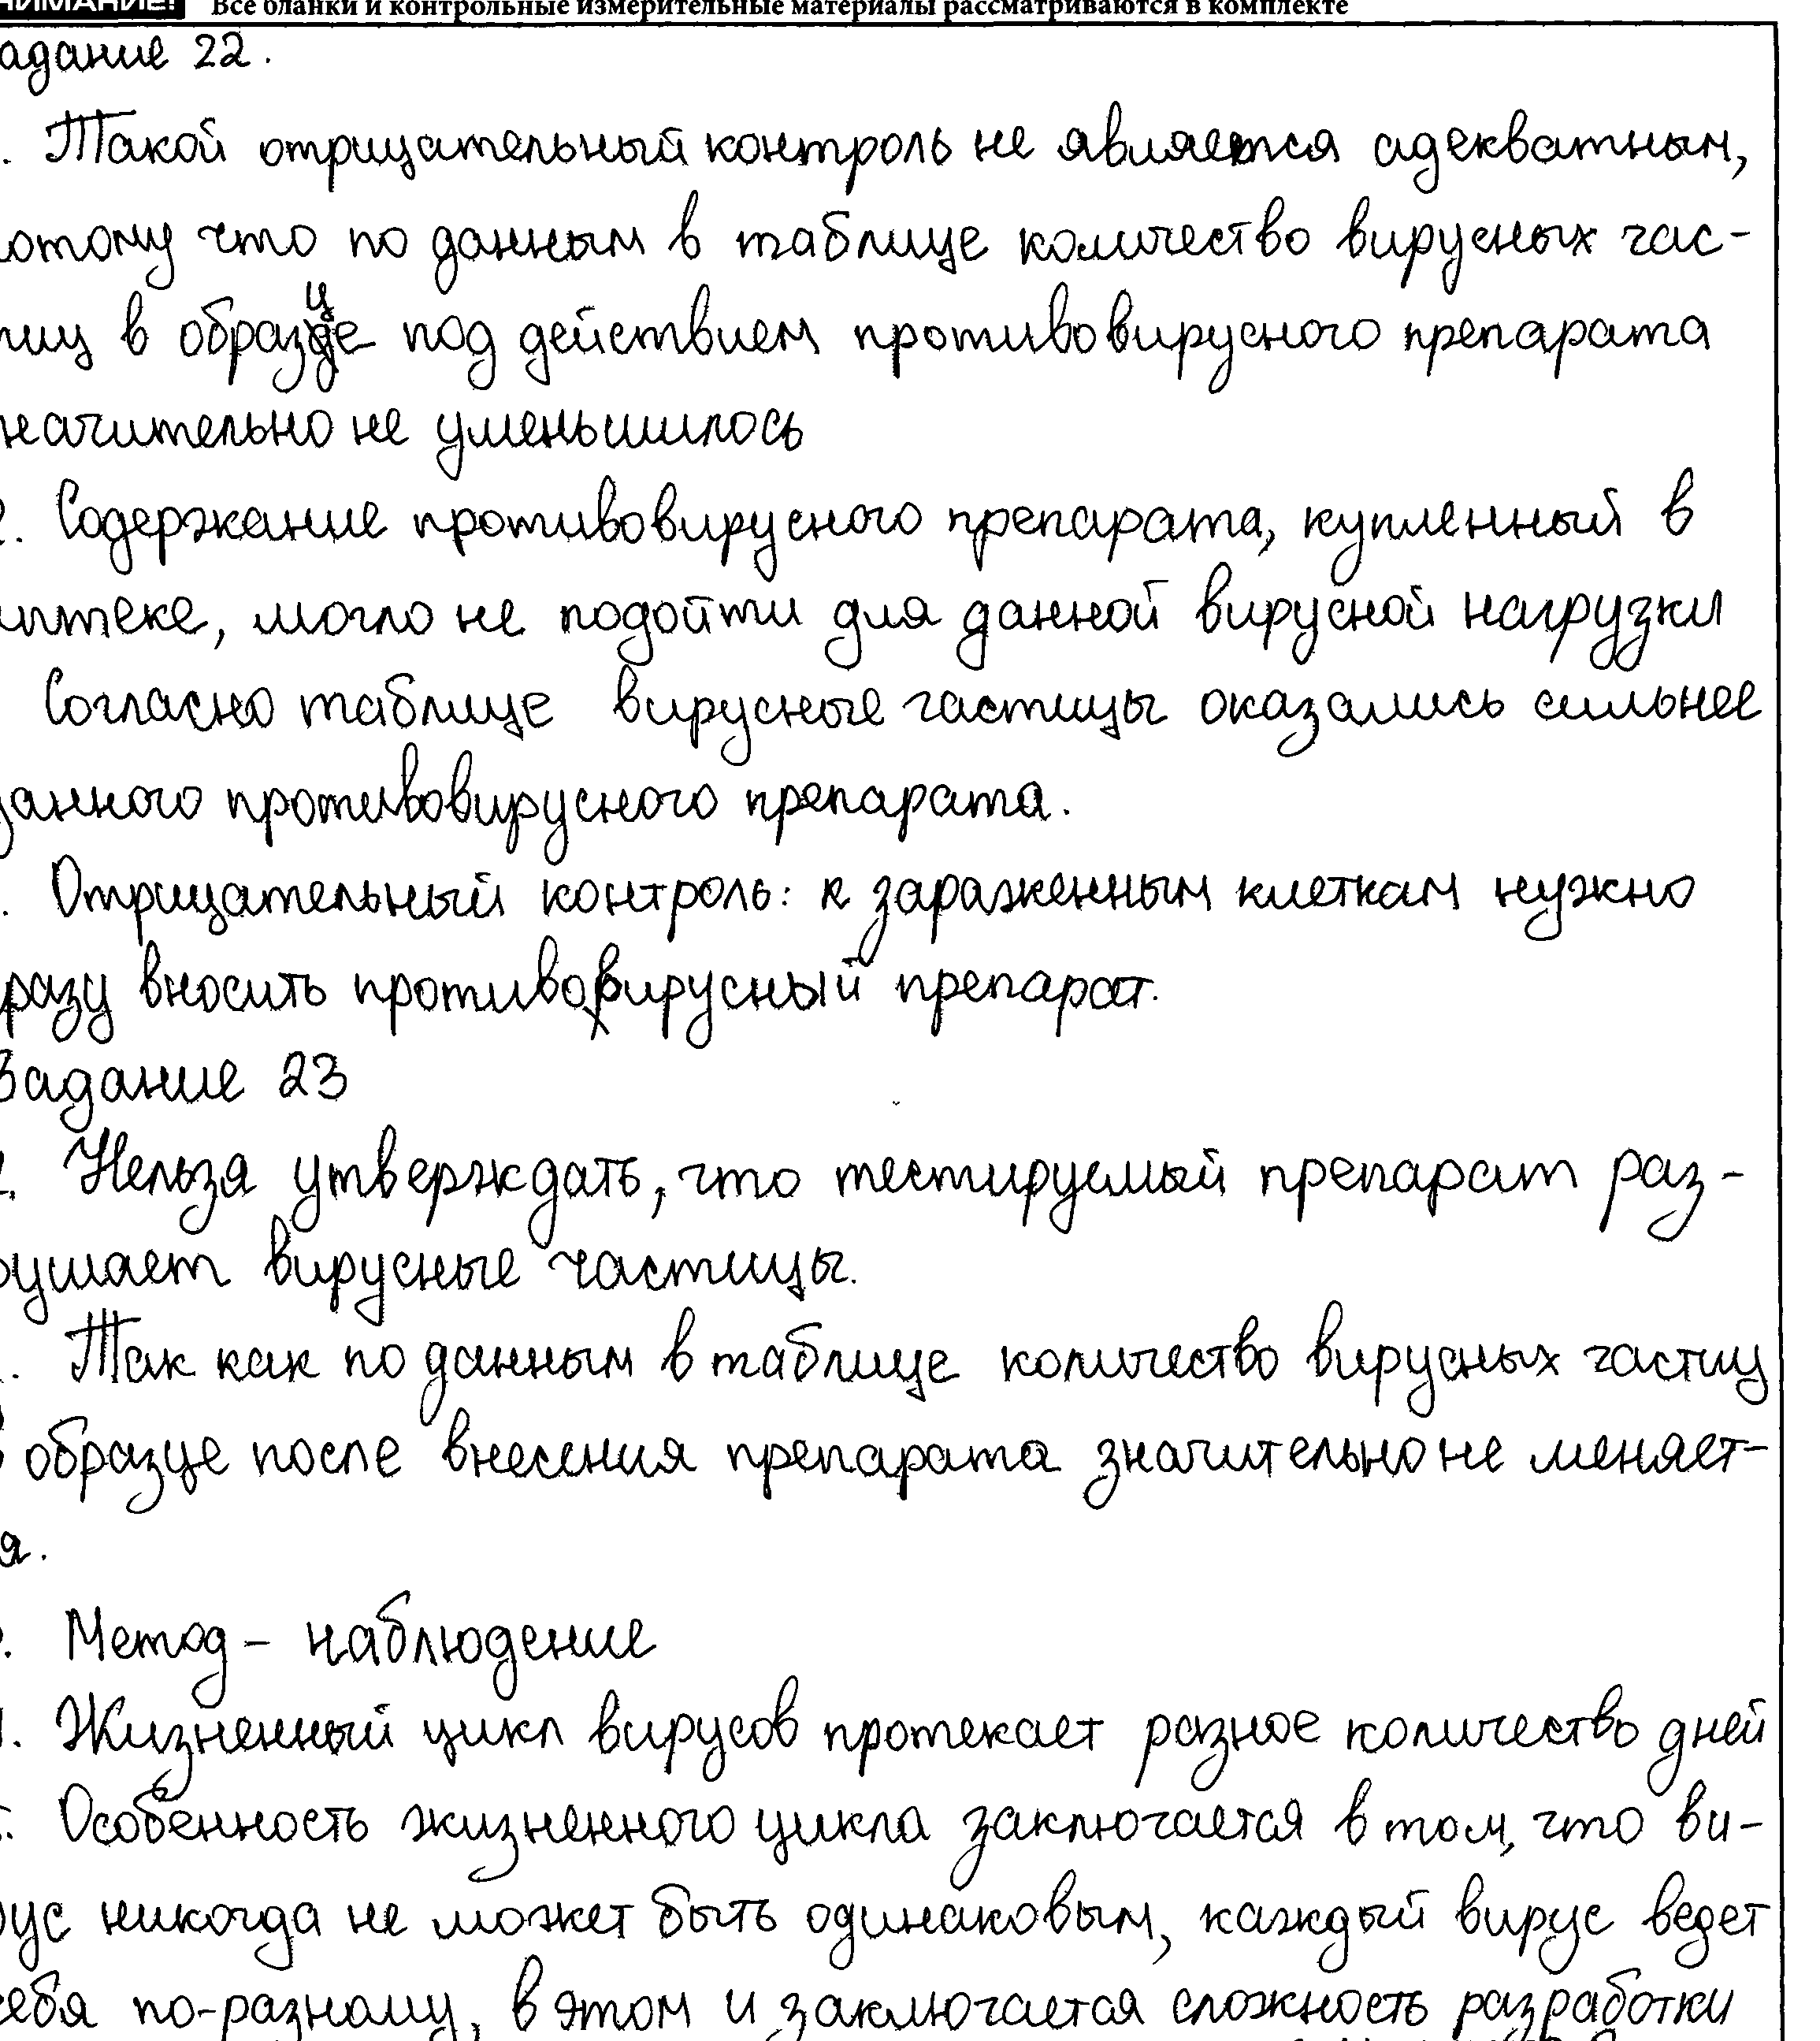 НИМАНИЕ! Все бланки и контрольные измерительные материалы рассматриваются в комплекте
адание 22.
. Такой отрицательный контроль не является адекватным,
потому что по данным в таблице количество вирусных час-
тиц в образце под действием противовирусного препарата
начительно не уменьшилось
2. Содержание противовирусного препарата, купленный в
аптеке, могло не подойти для данной вирусной нагрузки
Согласно таблице вирусные частицы оказались сильнее
данного противовирусного препарата.
. Отрицательный контроль: к зараженным клеткам нужно
разу вносить противовирусный препарат.
Задание 23
. Нельзя утверждать, что тестируемый препарат раз-
рушает вирусные частицы.
. Так как по данным в таблице количество вирусных частиц
в образце после внесения препарата значительно не меняет-
я.
. Метод – наблюдение
. Жизненный цикл вирусов протекает разное количество дней
. Особенность жизненного цикла заключается в том, что ви-
рус никогда не может быть одинаковым, каждый вирус ведет
себя по-разному, в этом и заключается сложность разработки